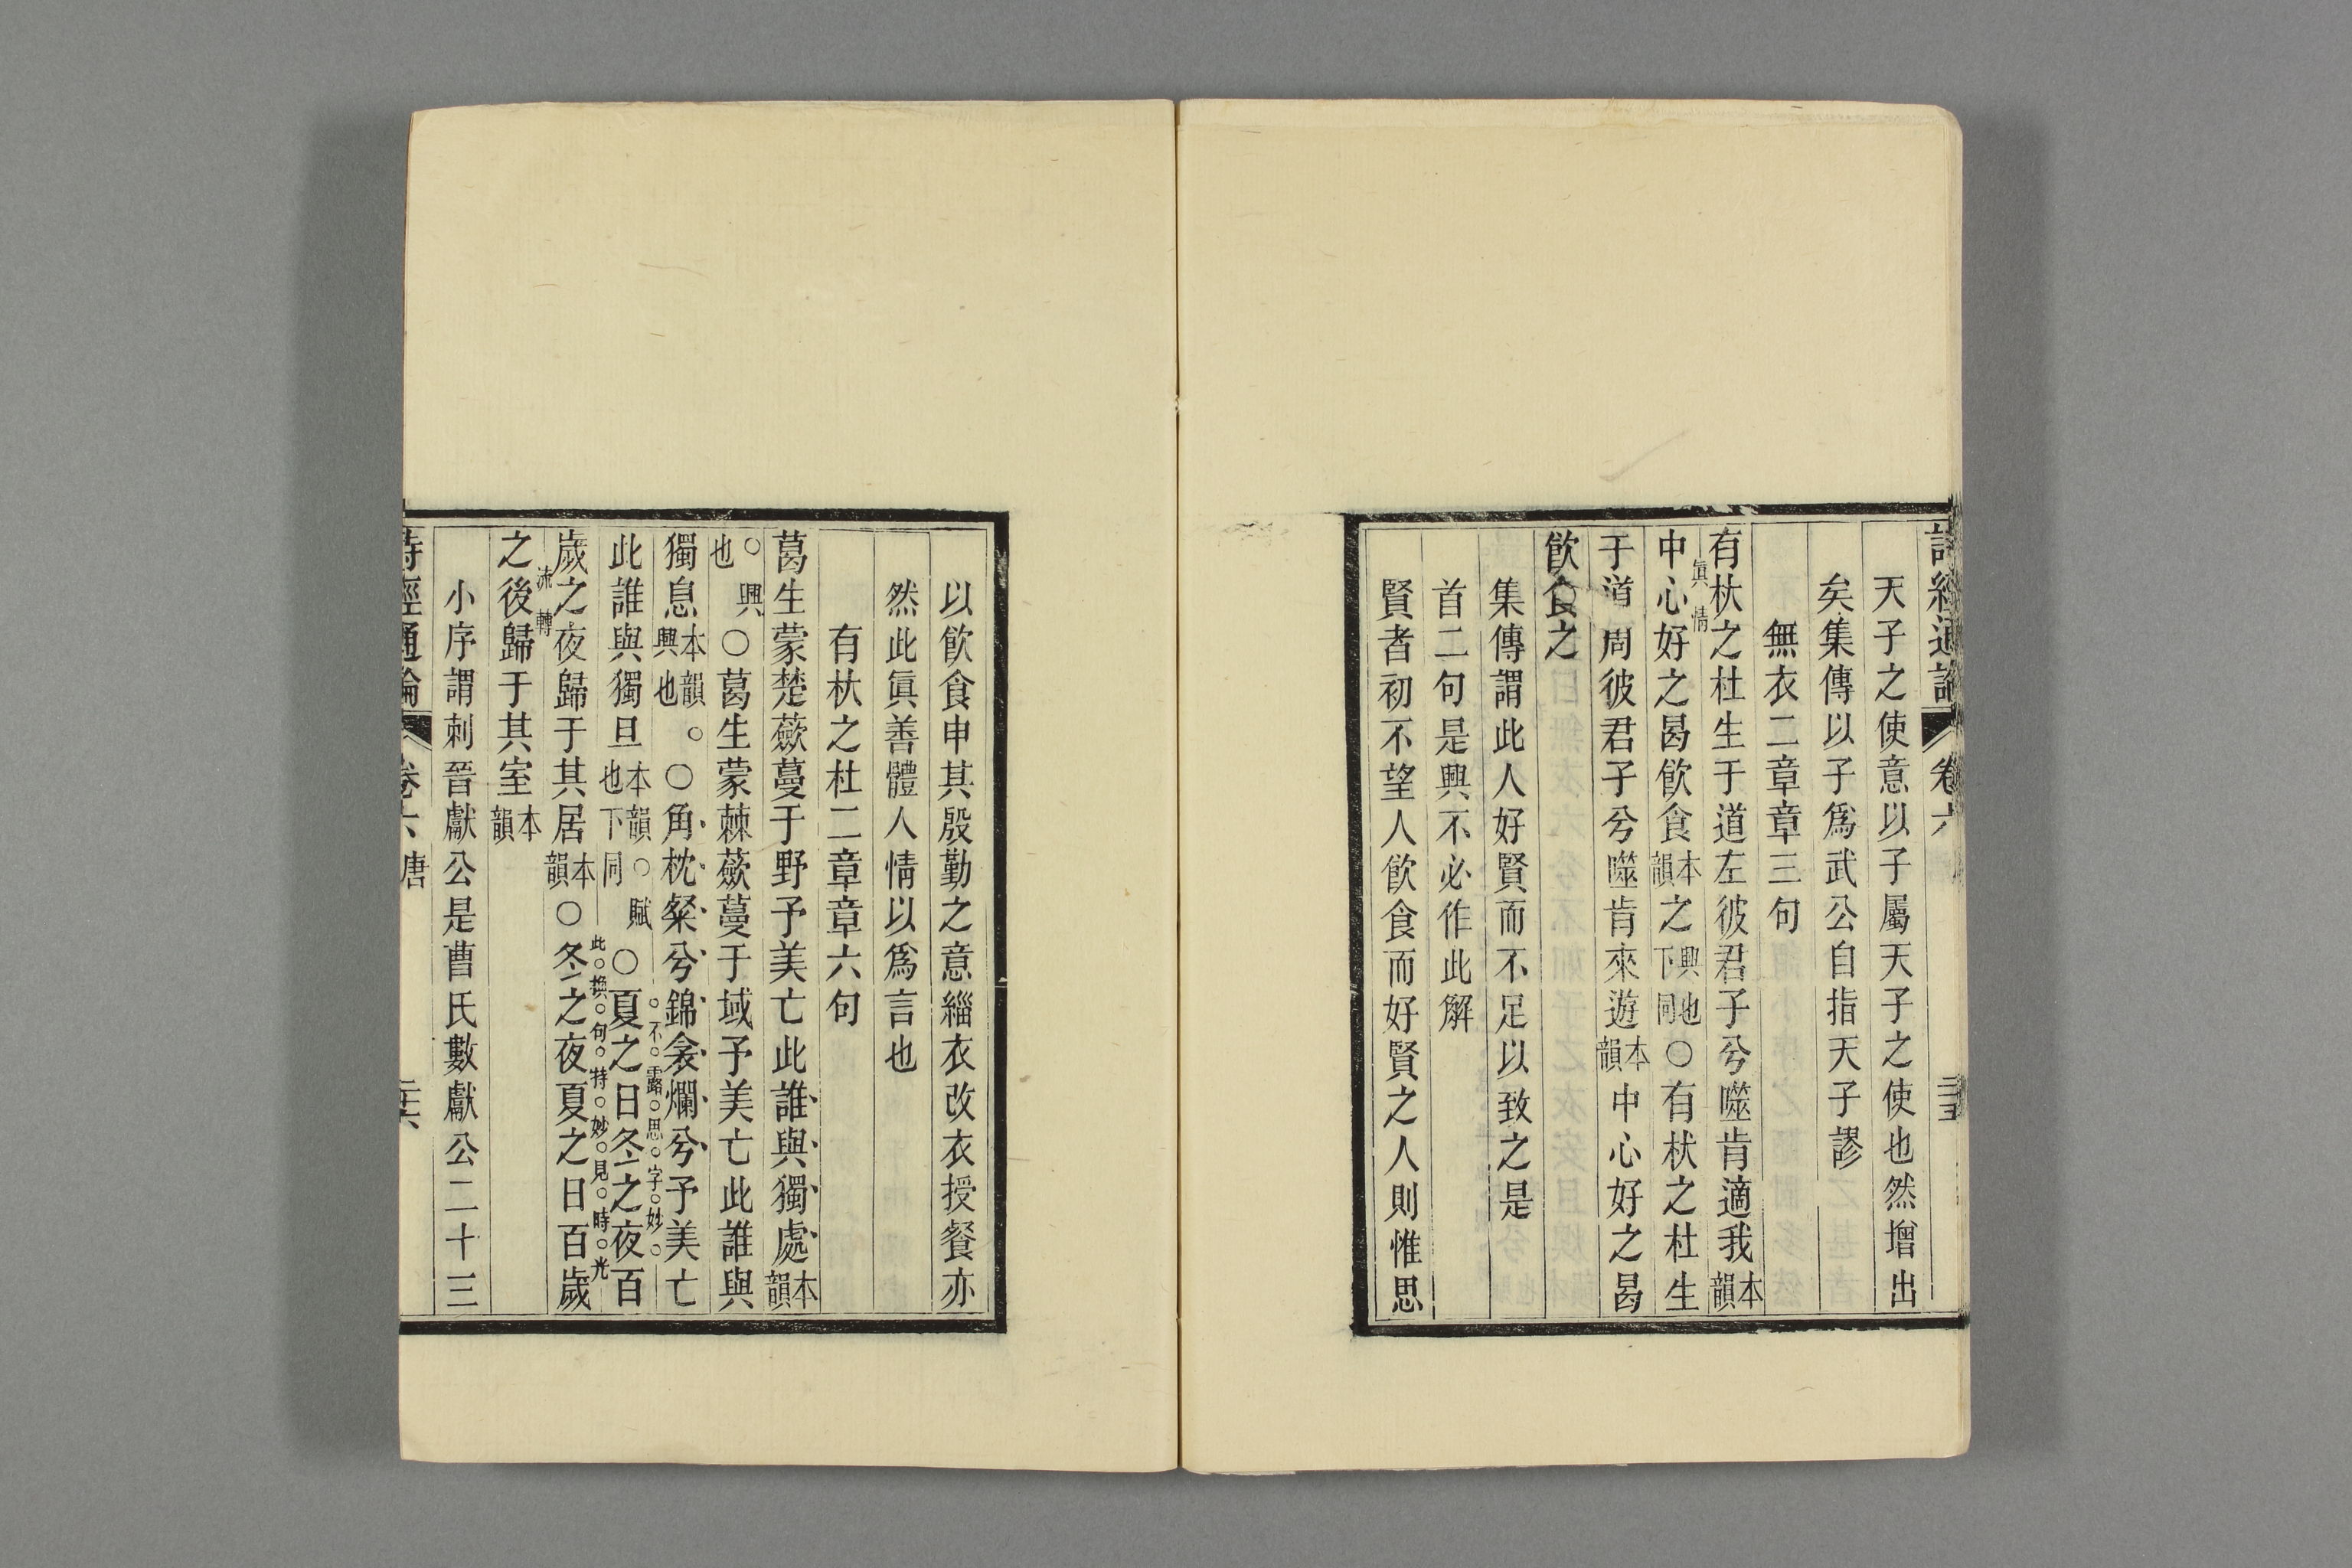 詩經通論 卷六
天子之使意以子屬天子之使也然增出
矣集傳以子爲武公自指天子謬
無衣二章章三句
有杕之杜生于道左彼君子兮噬肯適我本韻
眞情
中心好之曷飲食本韻之興也下同○有杕之杜生
于道周彼君子兮噬肯來遊本韻中心好之曷
飲食之
集傳謂此人好賢而不足以致之是
首二句是興不必作此解
賢者初不望人飲食而好賢之人則惟思
以飲食申其殷勤之意緇衣改衣授餐亦
然此眞善體人情以爲言也
有杕之杜二章章六句
葛生蒙楚蘞蔓于野予美亡此誰與獨處本韻
○興也○葛生蒙棘蘞蔓于域予美亡此誰與
獨息本韻。興也○角枕粲兮錦衾爛兮予美亡
不露思字妙
此誰與獨旦本韻○賦也下同○夏之日冬之夜百
此換句特妙見時光
歲之夜歸于其居本韻○冬之夜夏之日百歲
流轉
之後歸于其室本韻
小序謂刺晉獻公是曹氏數獻公二十三
詩經通論 卷六 唐 二十六